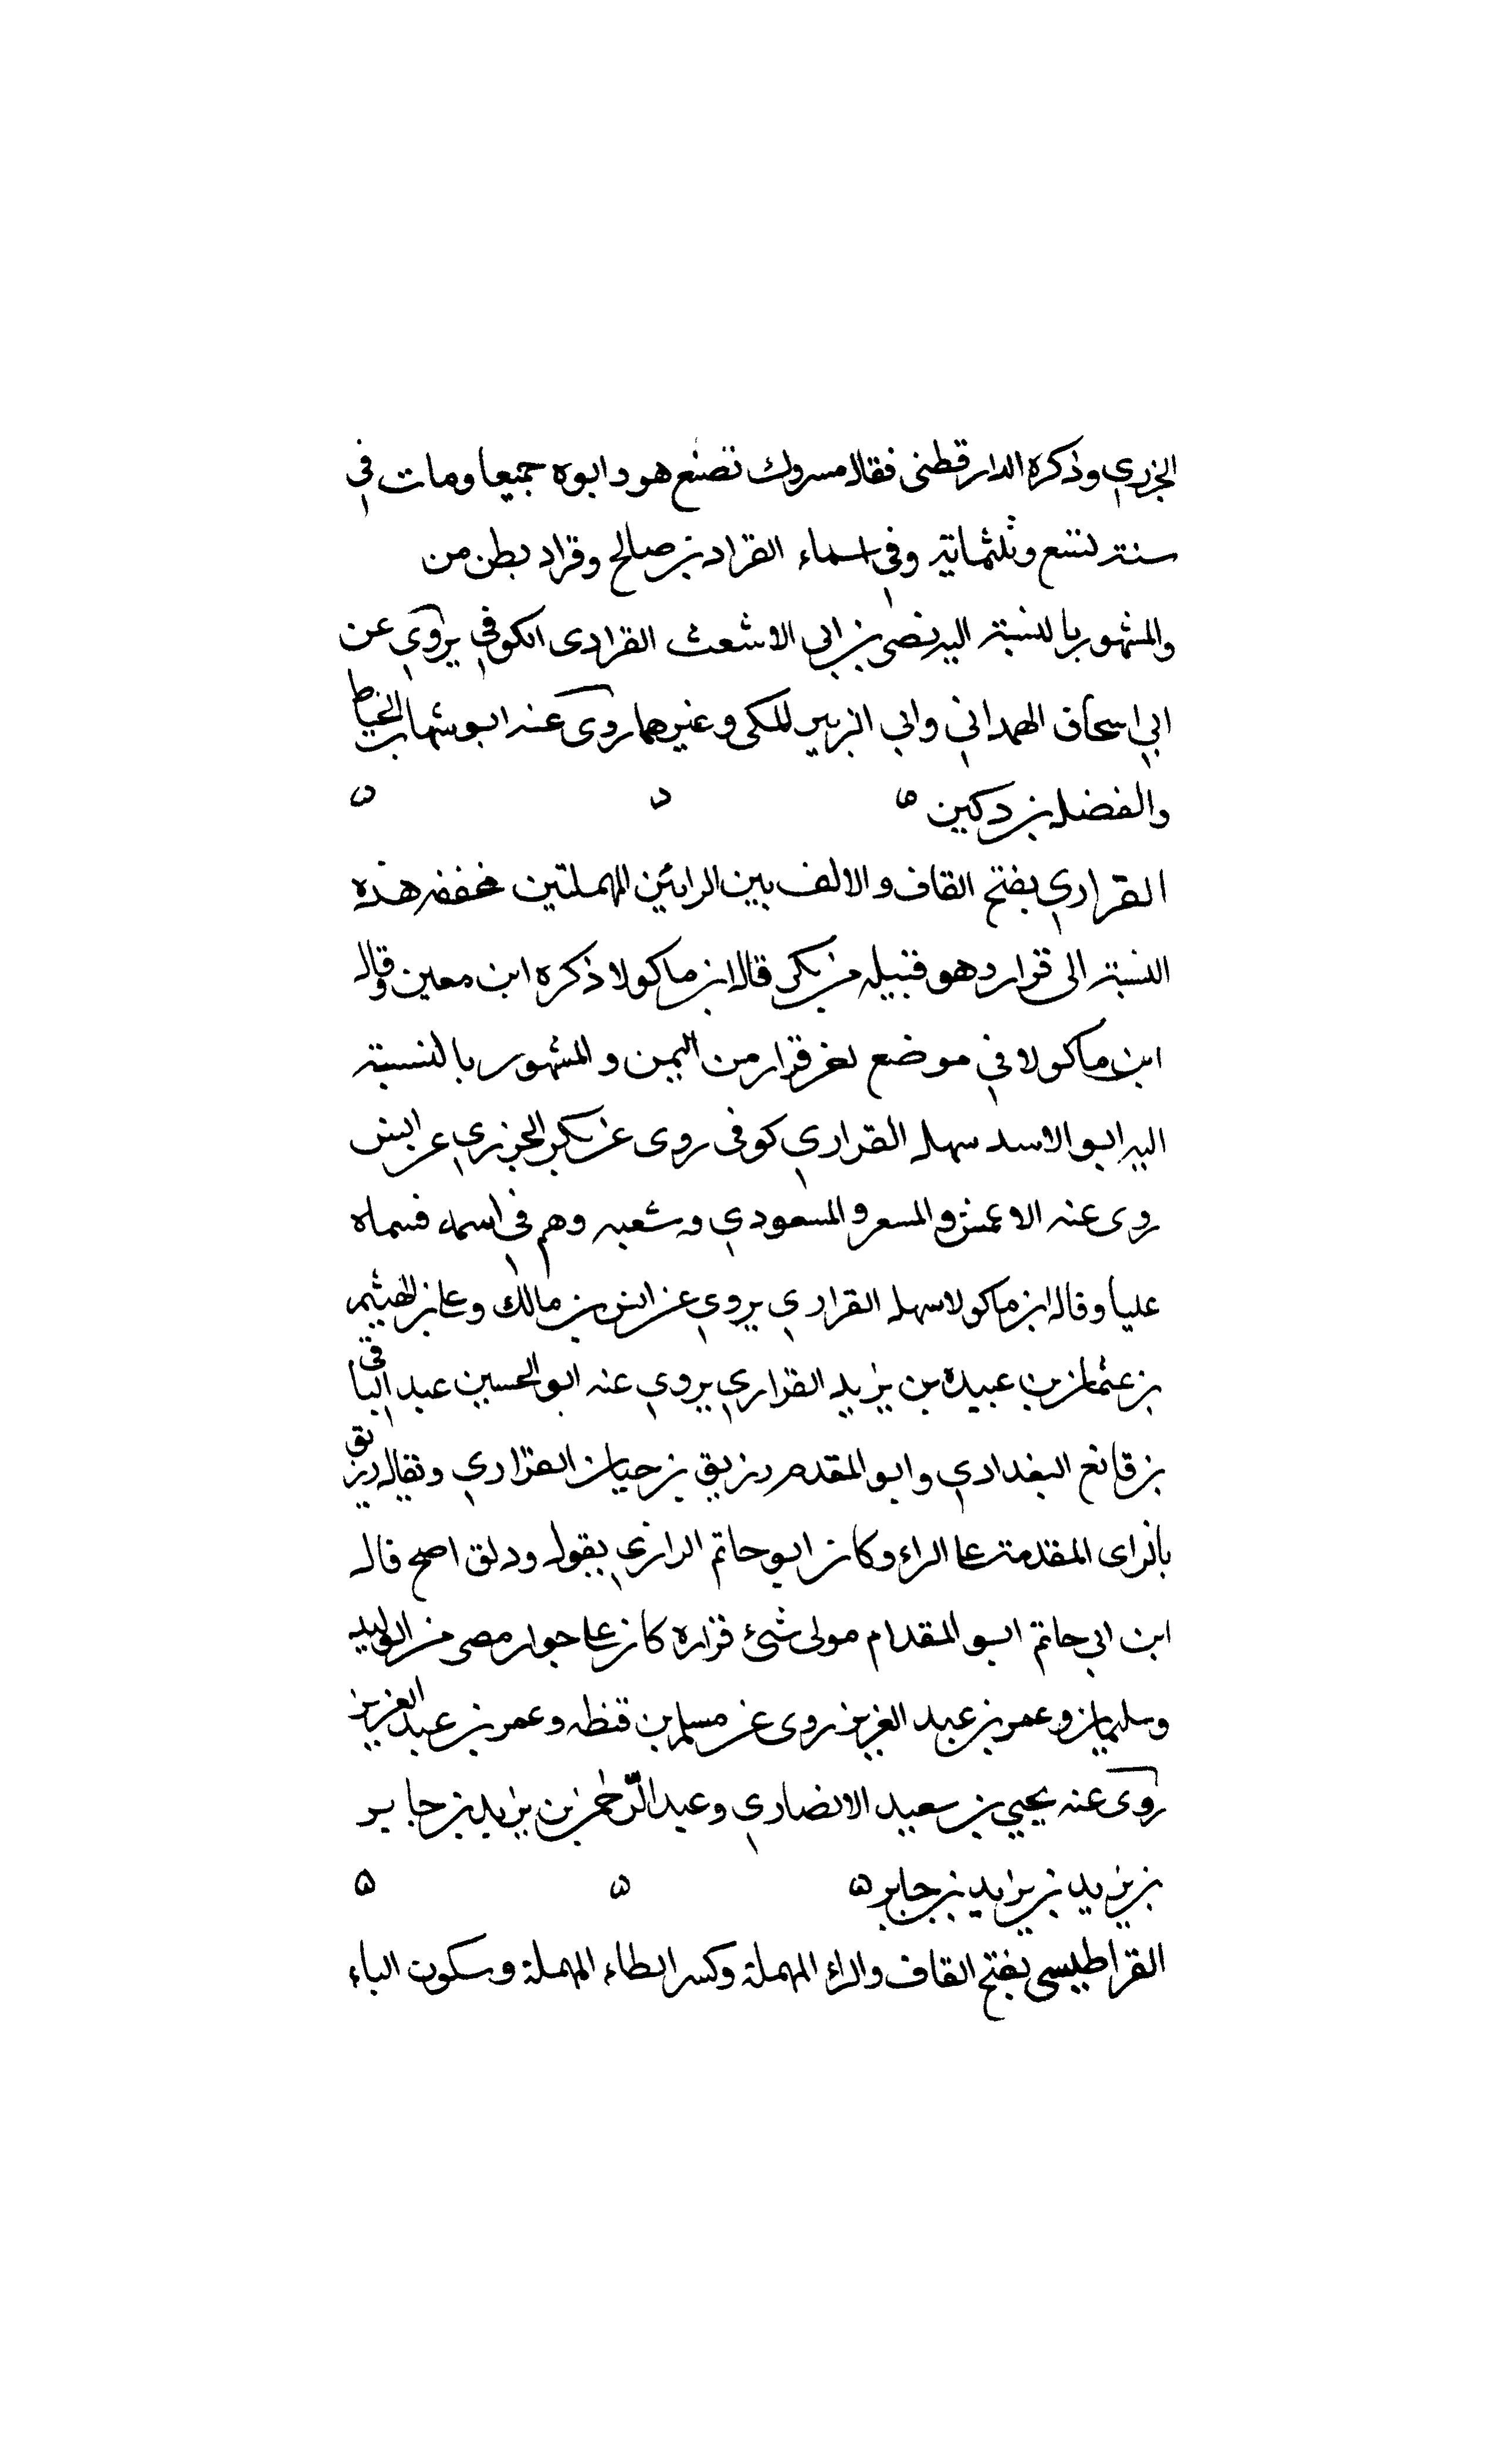 الجزري وذكره الدارقطنى فقال متروك تصنع هو وابوه جميعا ومات فى
سنة تسع وثلثماية وفي اسماء القراد بن صالح وقراد بطن من
والمشهور بالنسبة اليه نصر بن ابى الاشعث القرادى الكوفي يروى عن
ابي اسحاق الهمداني وابي الزبير المكى وغيرهما روى عنه ابو شهاب الخياط
والفضل بن دكين ه ه ه
القراري بفتح القاف والالف بين الرائين المهملتين مخففه هذه
النسبة الى قرار وهو قبيله من بكر قال ابن ماكولا ذكره ابن معين وقال
ابن ماكولا في موضع اخر قرار من اليمن والمشهور بالنسبة
اليه ابو الاسد سهل القراري كوفى روى عن بكير الجزري عن انس
روى عنه الاعمش والمسعر والمسعودي وشعبه وهم في اسمه فسماه
عليا وقال ابن ماكولا سهل القراري يروي عن انس بن مالك وعلى بن الهيثم
بن عثمان بن عبيدة بن يزيد القراري يروي عنه ابو الحسين عبد الباقى
بن قانع البغدادي وابو المقدم رزيق بن حيان القزاري ويقال زريق
بالزاى المقدمة على الراء وكان ابو حاتم الرازي يقول ودلق اصح قال
ابن ابي حاتم ابو المقدام مولى شئ قزاره كان على جواز مصر من الوليد
وسليمان وعمر بن عبد العزيز روى عن مسلم بن قنظه وعمر بن عبد العزيز
روى عنه يحيي بن سعيد الانصاري وعبد الرحمن بن يزيد بن جابر
بن يزيد بن يزيد بن جابر ه ه ه
القراطيسى بفتح القاف والراء المهملة وكسر الطاء المهملة وسكون الياء